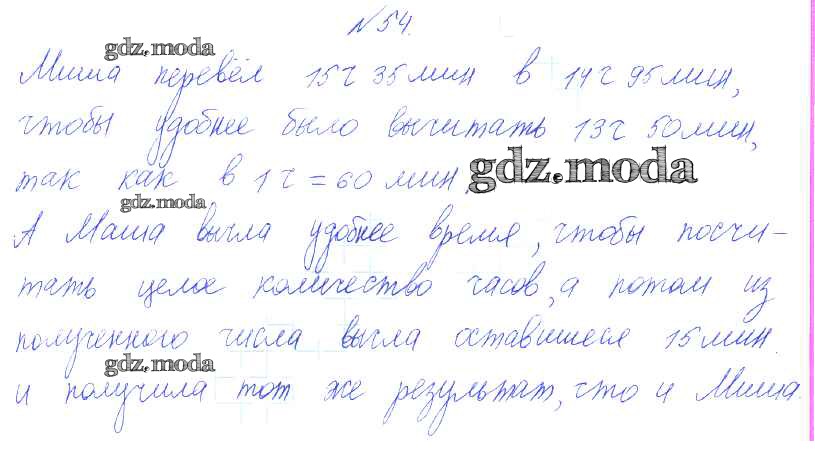 №54.
gdz.moda
Миша перевёл 15ч 35мин в 14ч 95мин,
чтобы удобнее было вычитать 13ч 50мин,
так как в 1ч = 60 мин. gdz.moda
gdz.moda
А Маша вычла удобнее время, чтобы посчи-
тать целое количество часов, а потом из
полученного числа вычла оставшиеся 15мин
gdz.moda
и получила тот же результат, что и Миша.